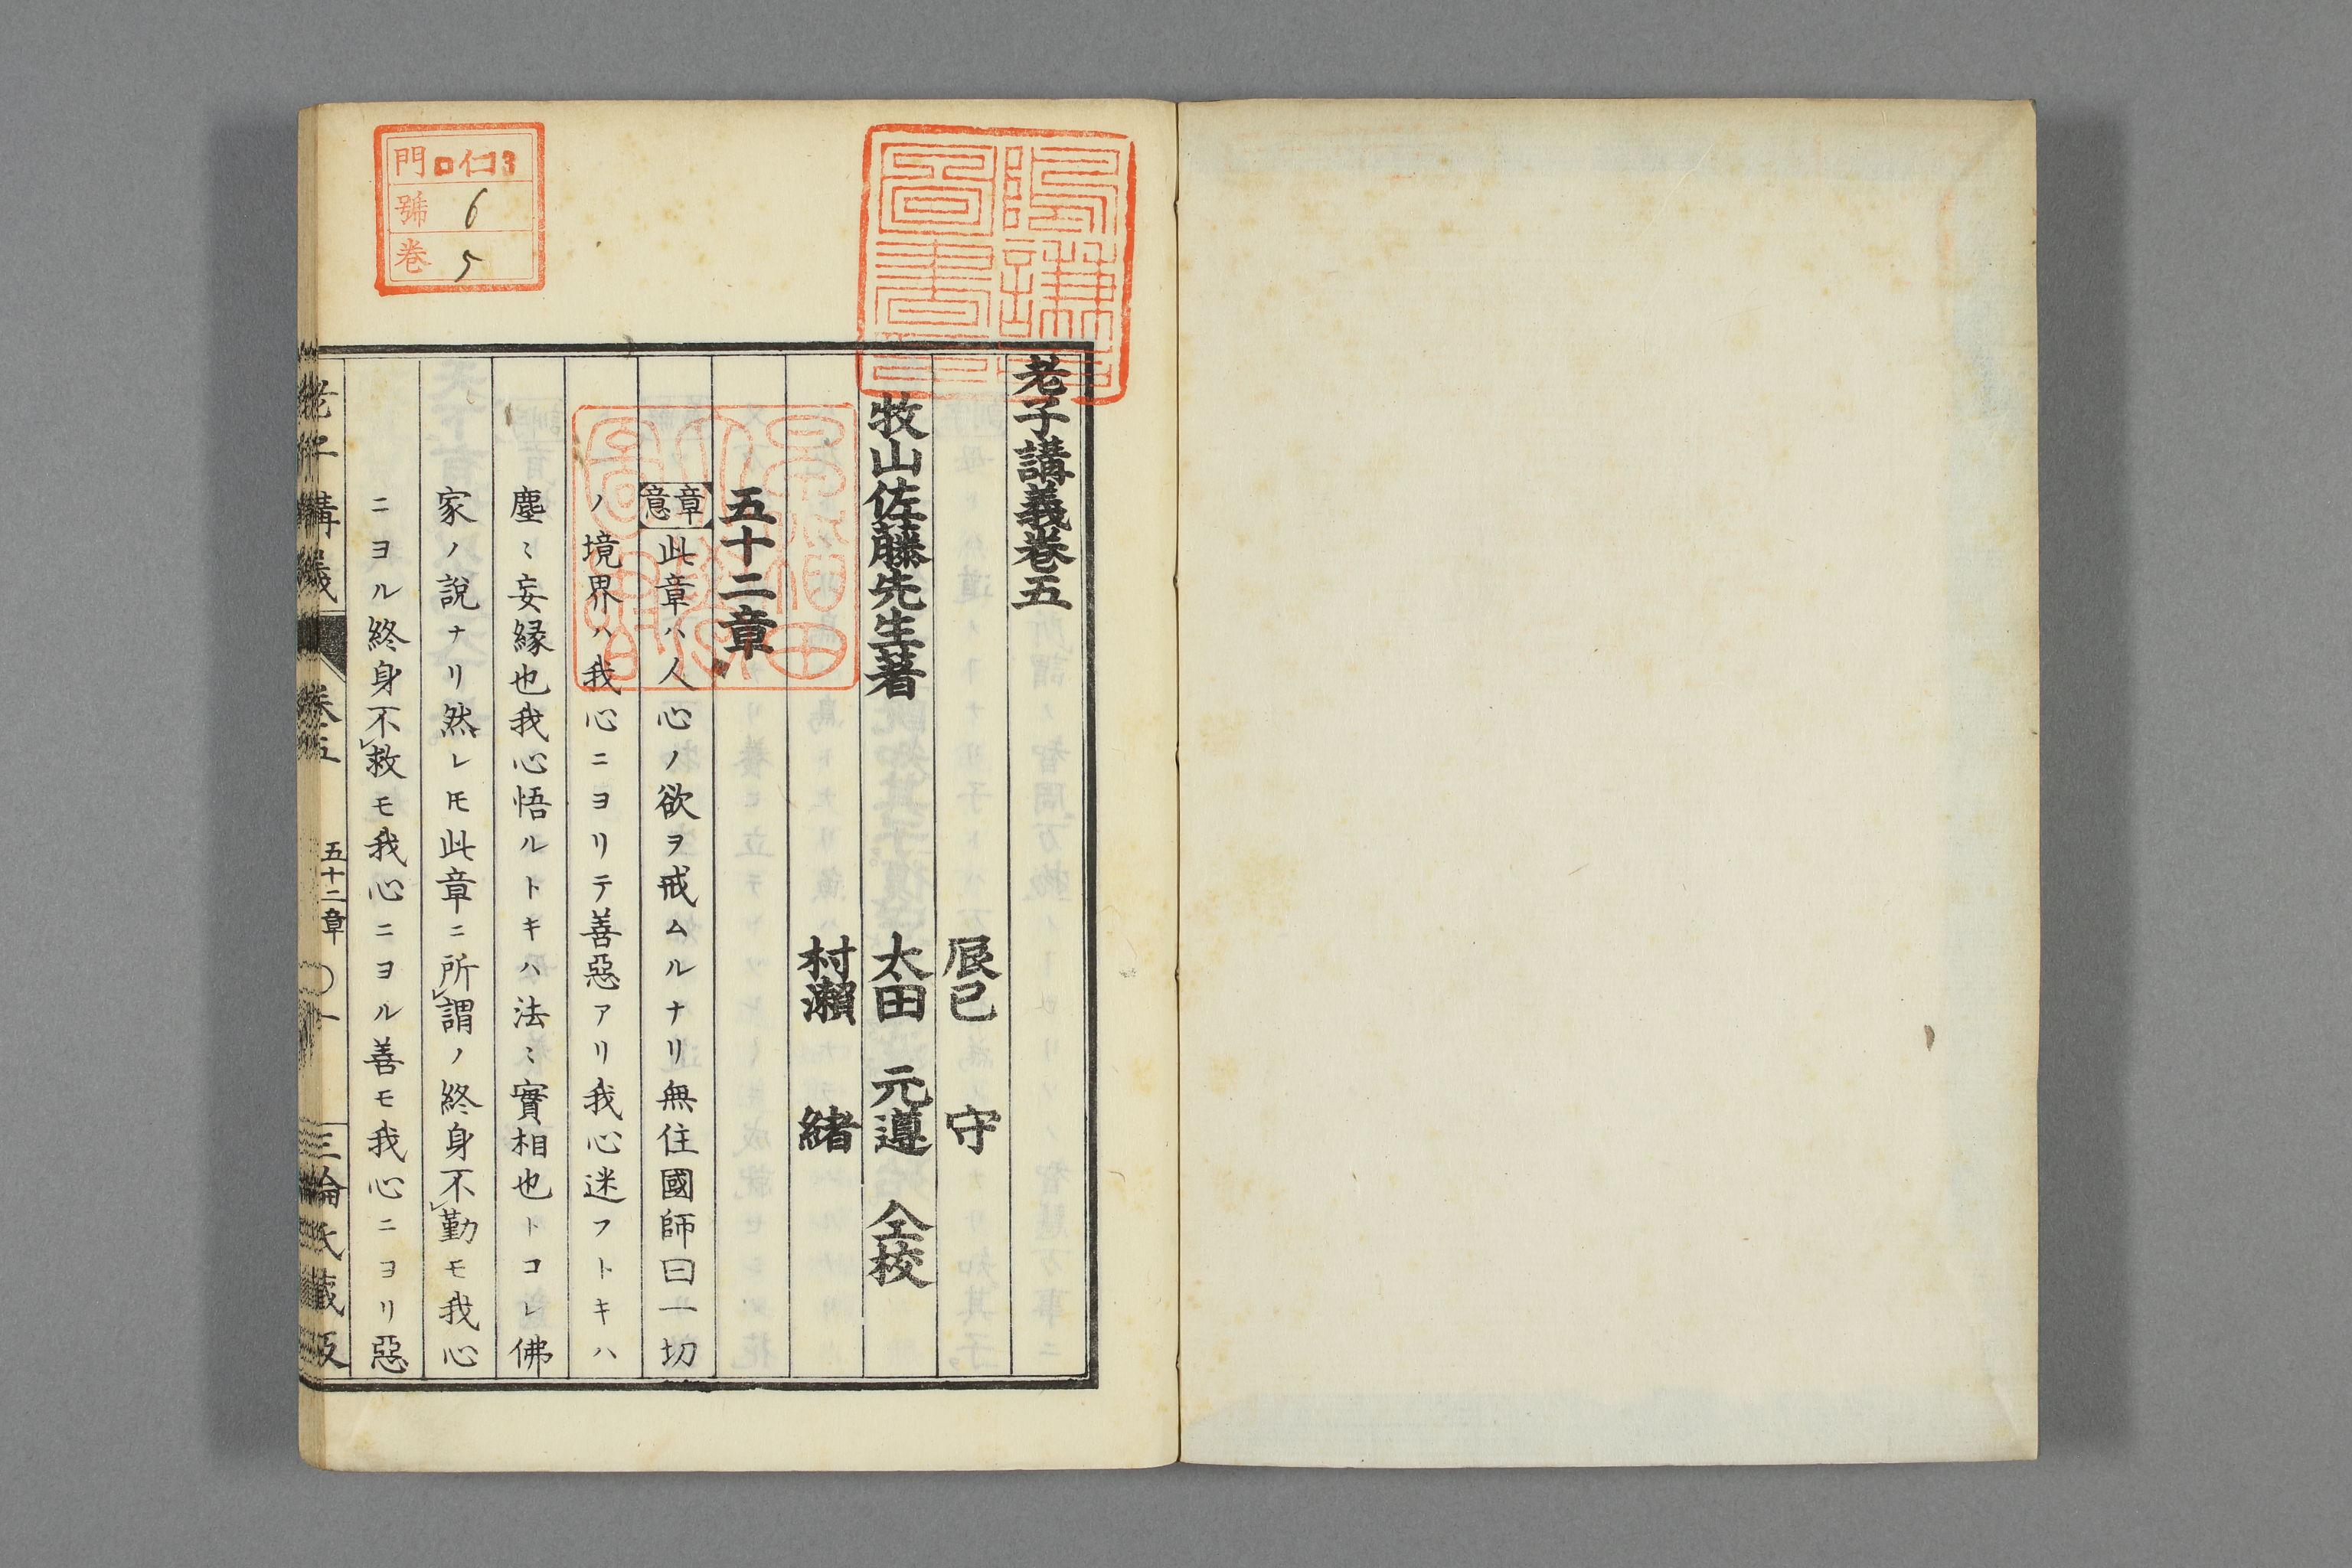 老子講義卷五
辰巳 守
牧山佐藤先生著 太田 元遵 仝校
村瀬 緒
五十二章
章意 此章ハ人心ノ欲ヲ戒ムルナリ無住國師曰一切
ノ境界ハ我心ニヨリテ善惡アリ我心迷フトキハ
塵〻妄縁也我心悟ルトキハ法〻實相也トコレ佛
家ノ說ナリ然レ𪜈此章ニ所謂ノ終身不勤モ我心
ニヨル終身不救モ我心ニヨル善モ我心ニヨリ惡
老子講義 卷五 五十二章 〇一
門 ロ仁13
號 6
卷 5